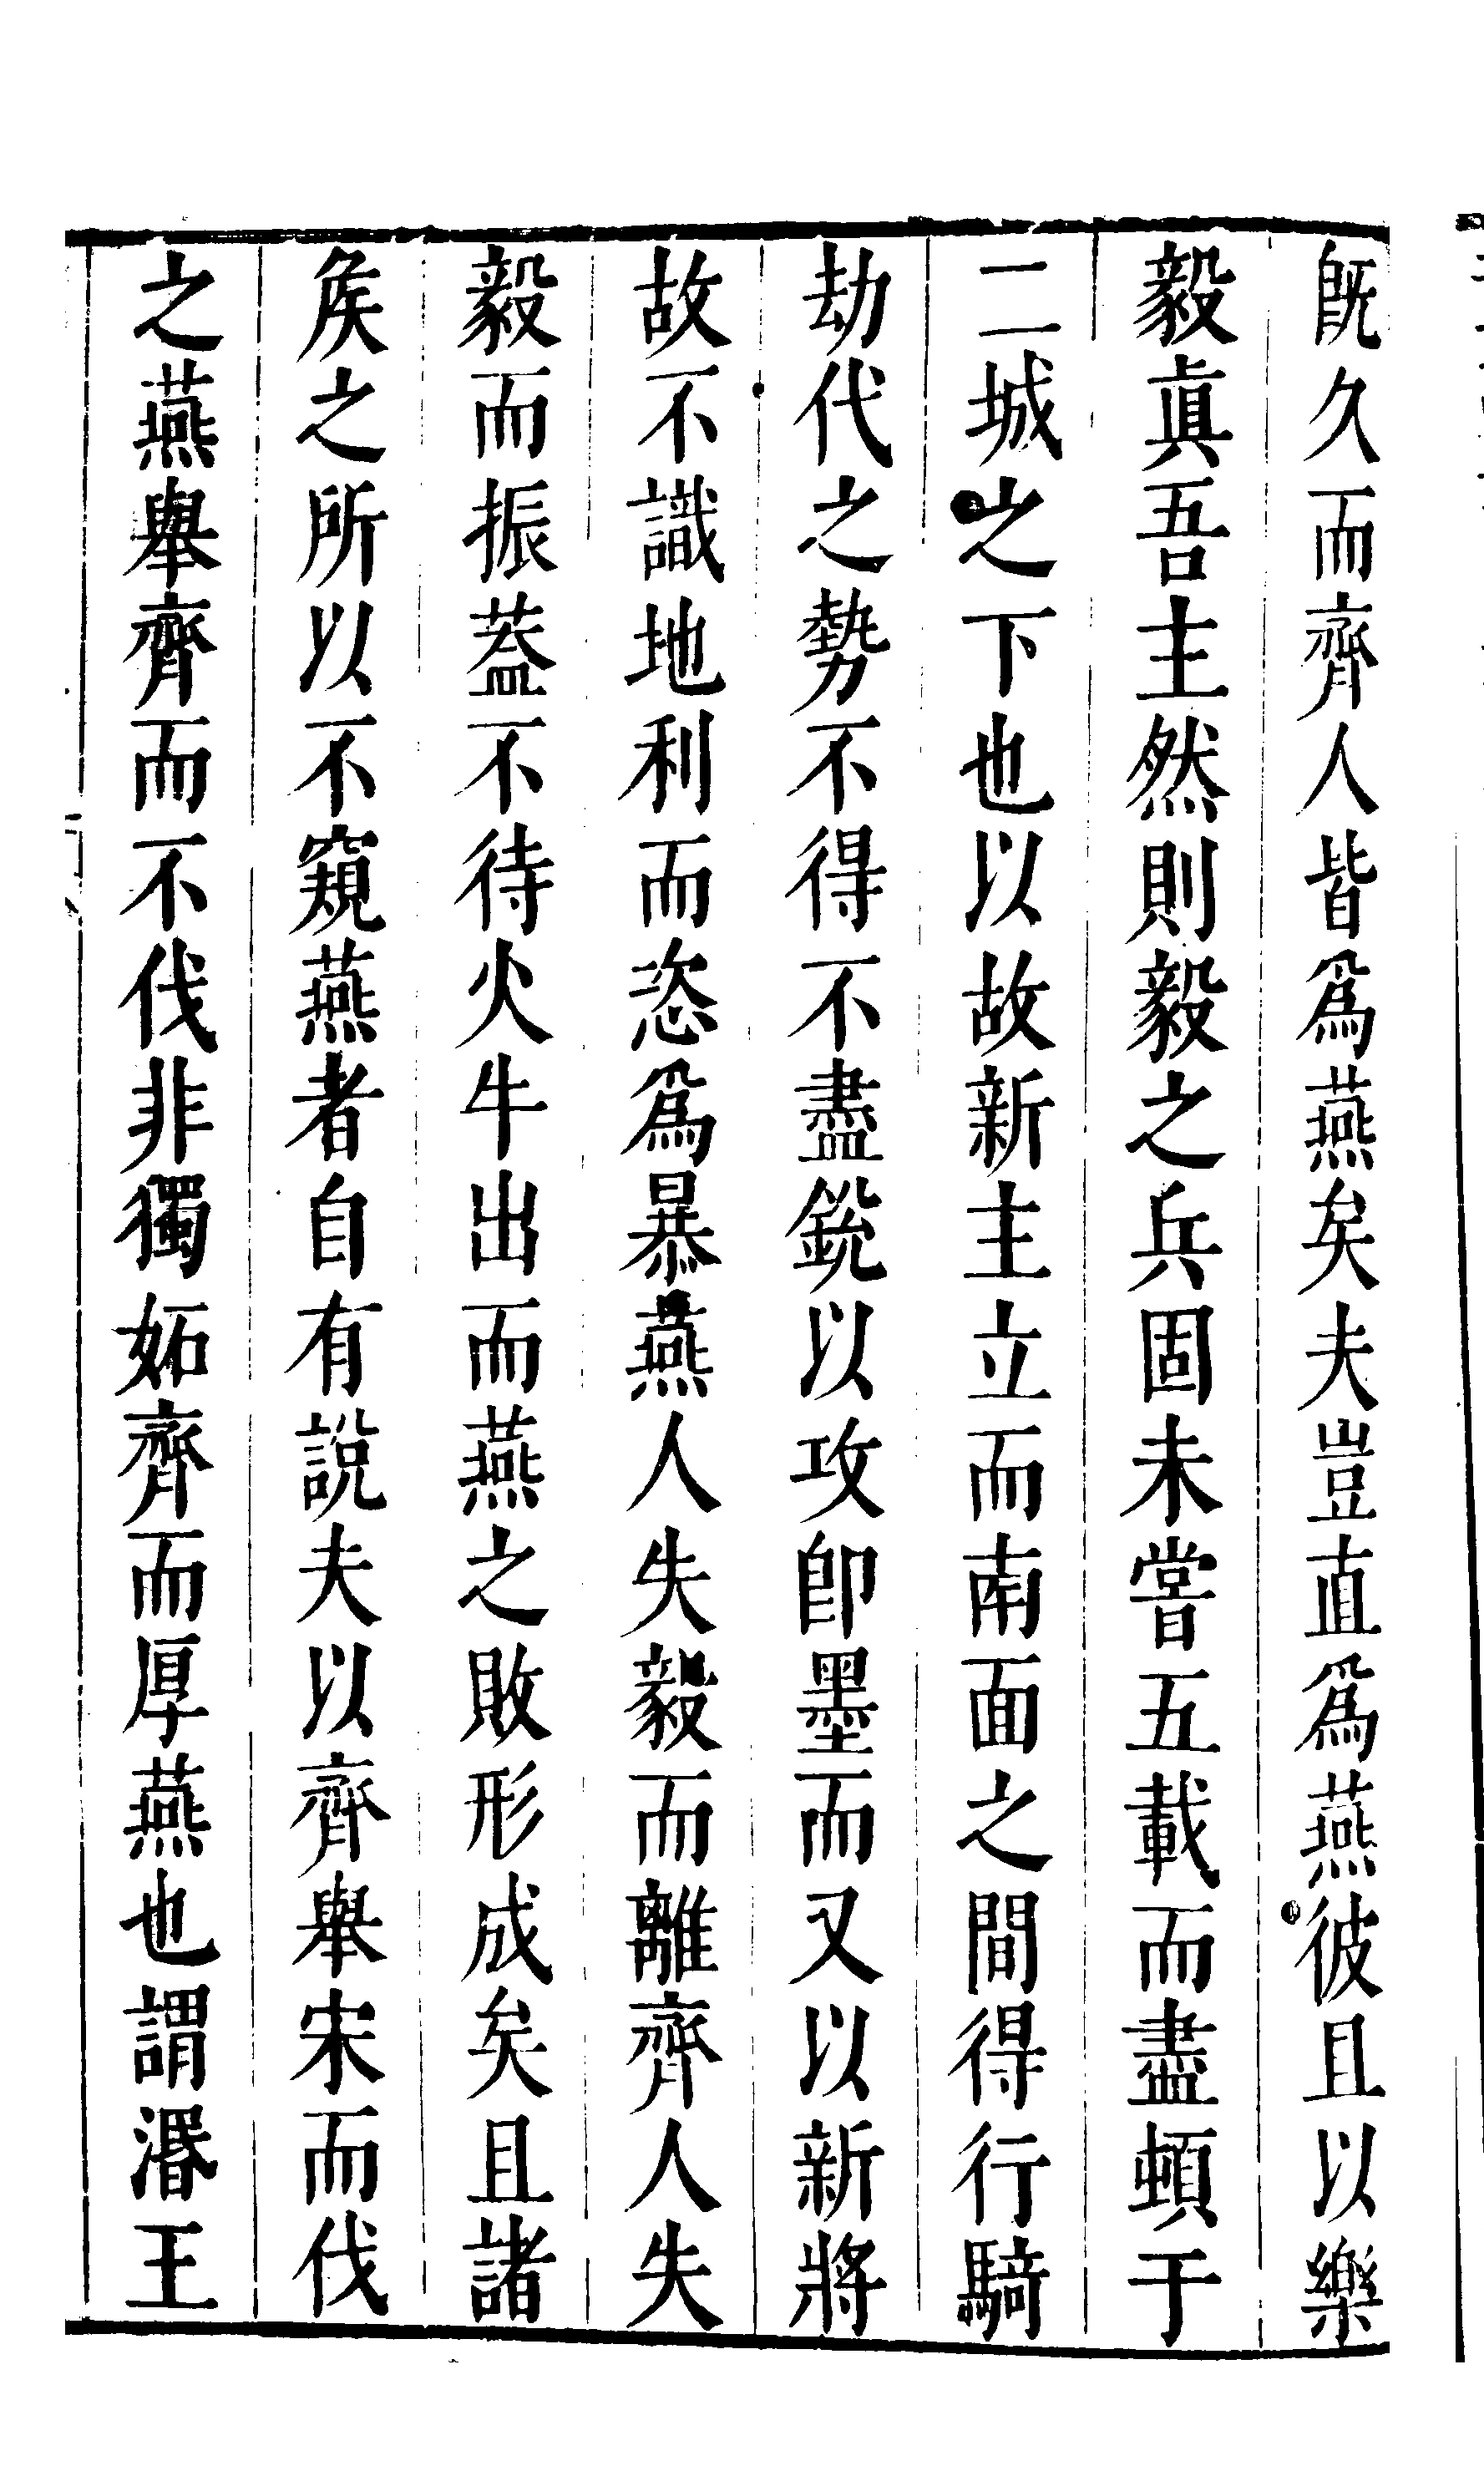 旣久而齊人皆爲燕矣夫豈直爲燕彼且以樂
毅眞吾主然則毅之兵固未嘗五載而盡頓于
二城之下也以故新主立而南面之間得行騎
劫代之勢不得不盡銳以攻卽墨而又以新將
故不識地利而恣爲暴燕人失毅而離齊人失
毅而振蓋不待火牛出而燕之敗形成矣且諸
矦之所以不窺燕者自有說夫以齊舉宋而伐
之燕舉齊而不伐非獨妬齊而厚燕也謂湣王